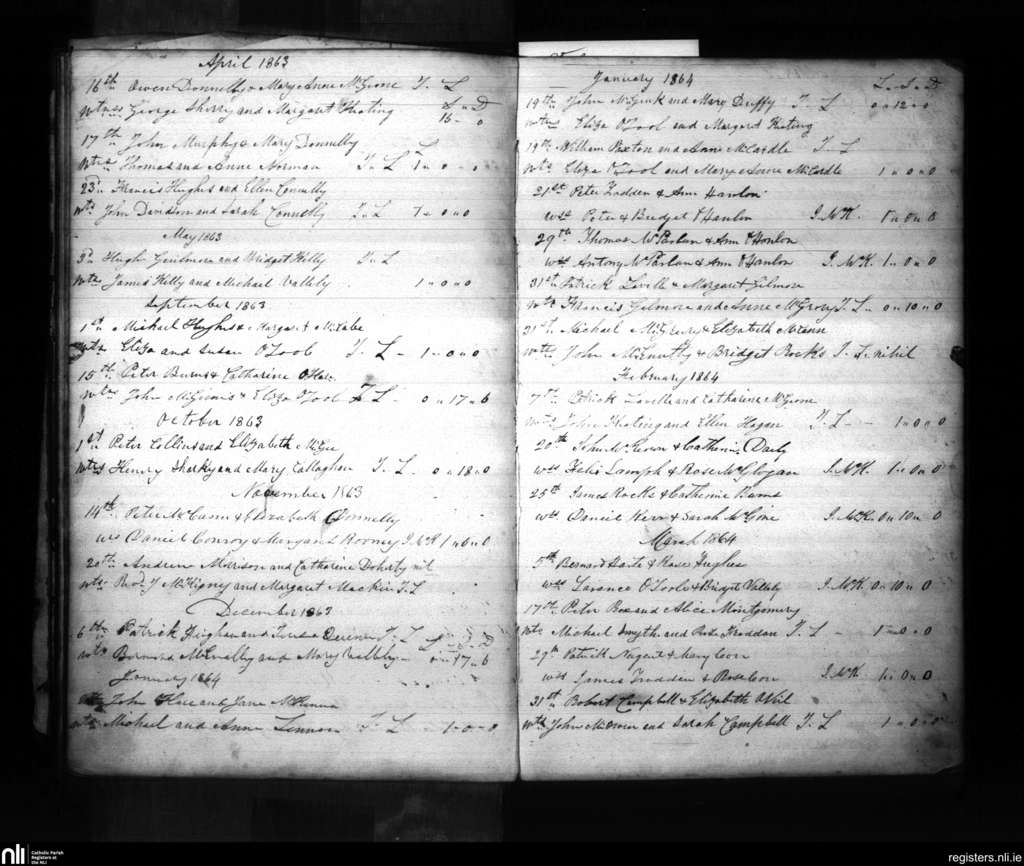 April 1863
16th Owen Donnelly & Mary Anne McGeone T. L
Wtness George Sherry and Margaret Keating 16 - 0
17th John Murphy & Mary Donnelly
Wtes Thomas and Anne Norman T. L 1 - 0 - 0
23d Francis Hughes and Ellen Connelly
Wts John Davidson and Sarah Connelly T. L 1 - 0 - 0
May 1863
Hugh and Bridget Kelly T. L
Wtes James Kelly and Michael Vallely 1 - 0 - 0
September 1863
1st Michael Hughes & Margaret McCabe
Wtes Eliza and Susan O'Tool T. L - 1 - 0 - 0
15th Peter Burns & Catharine O'Hare
Wtes John McGinnis & Eliza O'Tool T. L - 0 - 17 - 6
October 1863
1st Peter Collins and Elizabeth McGee
Wtes Henry Sharkey and Mary Callaghan T. L - 0 - 18 - 0
November 1863
14th Peter McCann & Elizabeth Donnelly
Wss Daniel Conroy & Margaret Rooney J. McK 1 - 0 - 0
20th Andrew Morrison and Catharine Doherty nil
Wtes and Margaret Mackin T. L
December 1863
6th Patrick and T. L
Wtes Bernard McEnally and Mary Vallely - 0 - 17 - 6
January 1864
John O'Hare and Jane McKenna
Wts Michael and Anne Lennon T. L - 1 - 0 - 0
January 1864 L. S. D
19th John McGurk and Mary Duffy T. L 0 - 12 - 0
Wtness Eliza O'Tool and Margaret Keating
19th William Paxton and Anne McArdle T. L
Wts Eliza O'Tool and Mary Anne McArdle 1 - 0 - 0
21st Peter Fadden & Ann Hanlon
Wss Peter & Bridget O'Hanlon J. McK. 1 - 0 - 0
29th Thomas McParlan & Ann O'Hanlon
Wss Antony McParlan & Ann O'Hanlon J. McK. 1 - 0 - 0
31st Patrick Lavelle & Margaret Gilmore
Wts Francis Gilmore and Anne McGrory T. L - 0 - 10 - 0
31st Michael & Elizabeth
Wtes John McEnulty & Bridget Rocks T. L nihil
February 1864
7th Patrick Lavelle and Catharine McGeone
Wts John Keating and Ellen Hagan T. L - - 1 - 0 - 0
20th John McKeown & Catherine Daily
Wss Felix Lamph & Rose McGlogan J. McK. 1 - 0 - 0
25th James Rocks & Catherine Burns
Wss Daniel Kerr & Sarah McGine J. McK. 0 - 10 - 0
March 1864
5th Bernard & Hughes
Wss Larance O'Toole & Bridget Vallely J. McK 0 - 10 - 0
17th Peter Rox and Alice Montgomery
Wts Michael Smyth and Rose Fraddan T. L - 1 - 0 - 0
29th Patrick Nugent & Mary Coor
Wss James Fradden & Rose Coor J. McK 1 - 0 - 0
31st Robert Campbell & Elizabeth O'Neil
Wts John and Sarah Campbell T. L 1 - 0 - 0
nli
Catholic Parish
Registers at
the NLI
registers.nli.ie